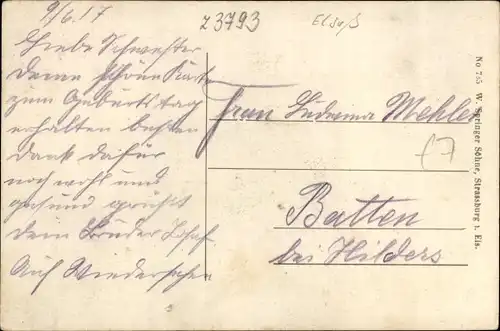 9/6.17
Z3793
Elsaß
Liebe Schwester
Deine schöne Karte
zum Geburtstag
erhalten besten
dank dafür
noch wohl und
gesund grüßt
dein Bruder Josef
Auf Wiedersehen
Frau Ludwina Mehler
Batten
bei Hilders
No 755 W. Springer Söhne, Strassburg i. Els.